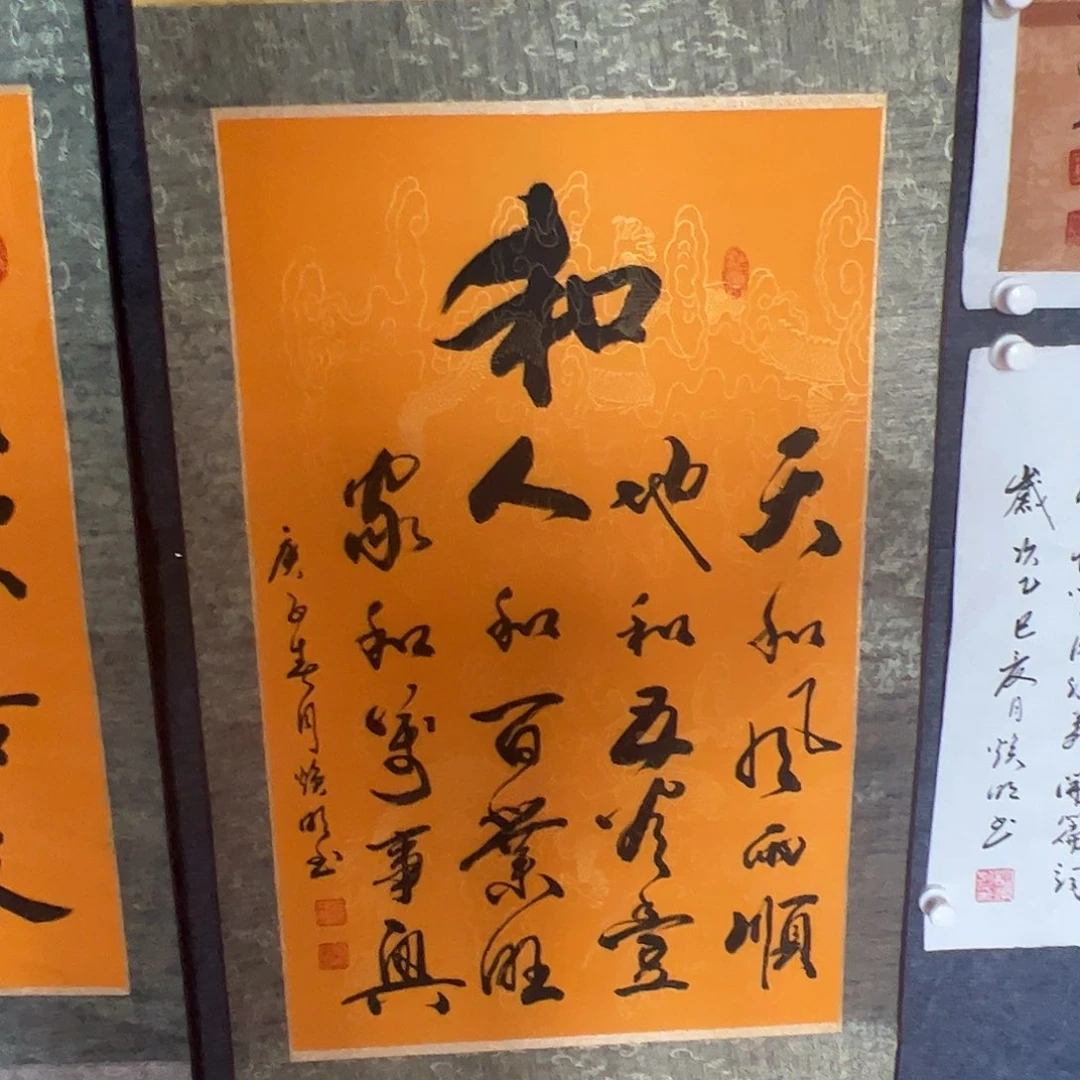 和
天和风雨順
地和五谷豊
人和百業旺
家和萬事興
庚子春月焕明书
歲次乙巳友月焕明书